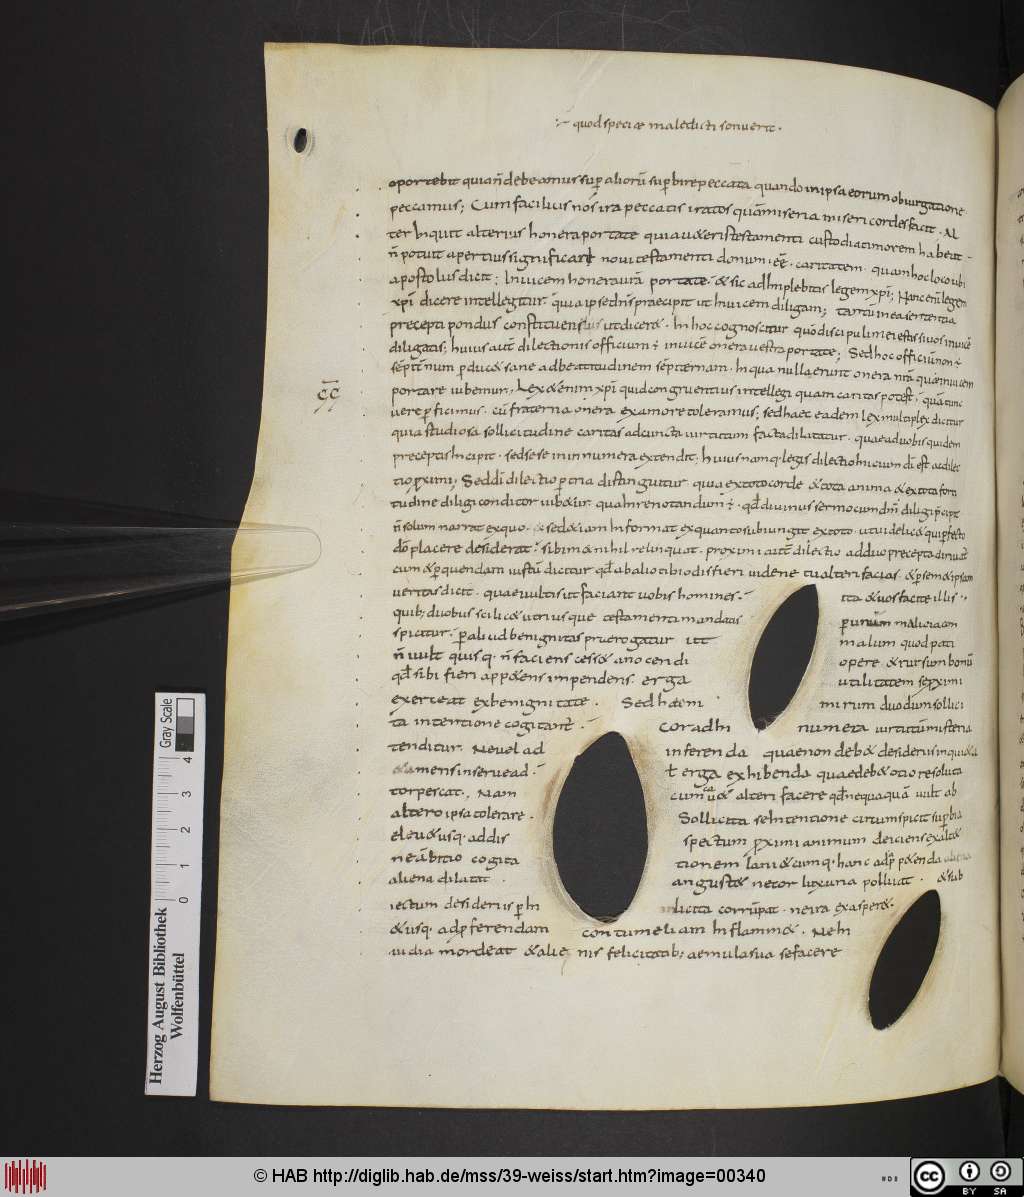 quod speciae maledicti sonuerit.
oportebit quia n̄ debeamus sup̄ aliorū sup̄bire peccata quando in ipsa eorum obiurgatione
peccamus; Cum facilius nos ira peccatis iratos quā miseria misericordes facit. Al
ter biquit alterius honera portate quia ueteris testamenti custodia timorem habeat.
n̄ potuit apertius significari noui testamenti donum. ēē. caritatem. quam hoc loco ubi
apostolus dicit; Inuicem honera urā portate. & sic adimplebitis legem xp̄i; Hanc enī legem
xp̄i dicere intellegitur. quia ipse dn̄s praecipit ut Inuicem diligam; tantū in ea sententia
precepti pondus constituens ut diceret. In hoc cognoscitur quod discipuli mei estis si uos inuicē
diligatis; huius autē dilectionis officium ÷ inuicē onera uestra portate; Sed hoc officiū non ÷
perducet sane ad beatitudinem sempternam. In qua nulla erunt onera nr̄a quae inuicem
portare iubemur; Lex etenim xp̄i quid congruentius intellegi quam caritas potest; quā tunc
uere perficimus. cū fraterna onera ex amore toleramus; sed haec eadem lex multiplex dicitur
quia studiosa sollicitudine caritas ad cuncta uirtutum facta dilatatur. quae a duobus quidem
preceptis Incipit. sed sese in innumera extendit; huius namq. legis dilectio Inicium dī est ac dilec
tio p̄ximi; Sed dī dilectio per tria distinguitur quia ex toto corde & tota anima & ex tota forti
tudine diligi conditor iubetur. qua In re notandum ÷. qd̄ diuinus sermo cum dm̄ diligi p̄cipit
n̄ solum narrat ex quo. sed etiam Informat ex quanto subiungit ex toto. ut uidelicet qui perfecto
dō placere desiderat. sibimet nihil relinquat. proximi autē dilectio ad duo precepta deriuatur
cum & per quendam iustū dicitur qd̄ ab alio tibi odis fieri uide ne tu alteri facias. & per semet ipsam
ueritas dicit. quae uultis ut faciant uobis homines. ita & uos facite illis.
quib; duobus scilic& utriusque testamenti mandatis per unum malicia com
spicitur. per aliud benignitas prerogatur ut malum quod pati
n̄ uult quisq. n̄ faciens cesset a nocendi opere & rursum bonū
qd̄ sibi fieri appetens impendens. erga utilitatem se p̄ximi
exerceat ex benignitate. Sed haec ni mirum duo dum sollici
ta intentione cogitant̄. cor ad In numera uirtutū misteria
tenditur. Ne uel ad inferenda quae non debet desideriis inquieta
& amens inserue ad. t̄ erga exhibenda quae debet otio resoluta
torpescat. Nam cum cauet alteri facere qd̄ nequaquā uult ab
altero ipsa tolerare. Sollicita se Intentione circumspicit superbia
eleuet usq. ad dis spectum p̄ximi animum deiciens exaltet
ne ābitio cogita tionem laniet cumq. hanc ad p& enda aliena
aliena dilatat. angustet ne cor luxuria polluat. & sub
iectum desideriis per In licita corrūpat. ne ira exasperet.
& usq. ad p̄ferendam contumeliam Inflammet. Ne In
uidia mordeat & alie nis felicitatib; aemula sua se facere
Herzog August Bibliothek
Wolfenbüttel
0 1 2 3 4
Gray Scale
© HAB http://diglib.hab.de/mss/39-weiss/start.htm?image=00340
cc BY SA